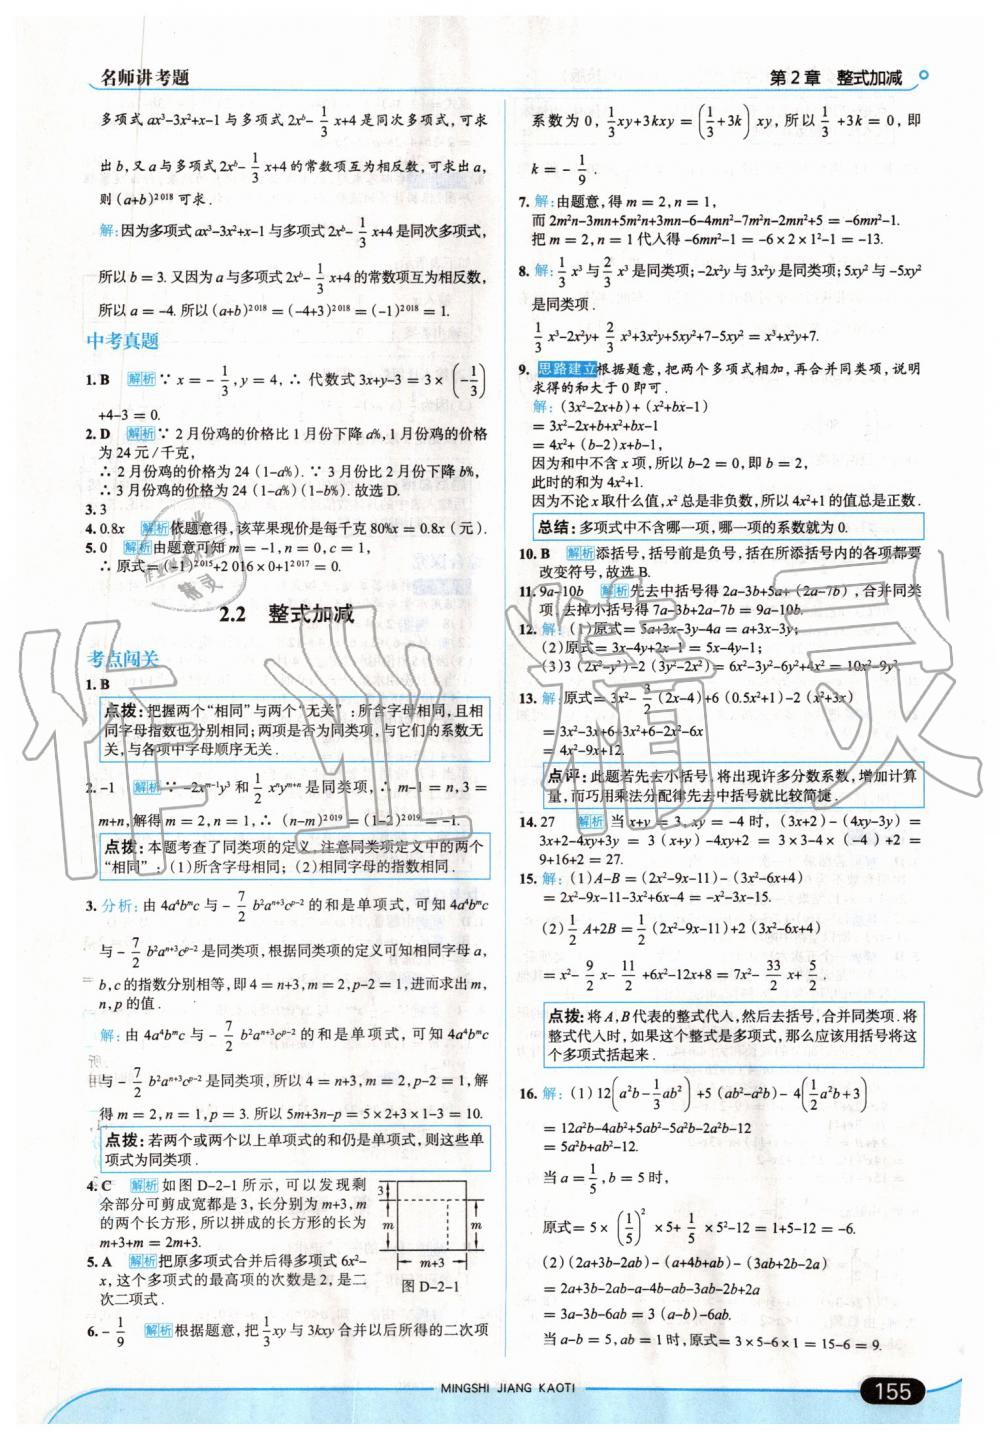 名师讲考题
第2章 整式加减
多项式ax³-3x²+x-1与多项式2xᵇ-1/3x+4是同次多项式,可求
出b,又a与多项式2xᵇ-1/3x+4的常数项互为相反数,可求出a,
则(a+b)²⁰¹⁸可求.
解:因为多项式ax³-3x²+x-1与多项式2xᵇ-1/3x+4是同次多项式,
所以b=3.又因为a与多项式2xᵇ-1/3x+4的常数项互为相反数,
所以a=-4.所以(a+b)²⁰¹⁸=(-4+3)²⁰¹⁸=(-1)²⁰¹⁸=1.
中考真题
1.B 解析∵x=-1/3,y=4,∴代数式3x+y-3=3×(-1/3)
+4-3=0.
2.D 解析∵2月份鸡的价格比1月份下降a%,1月份鸡的价格
为24元/千克,
∴2月份鸡的价格为24(1-a%).∵3月份比2月份下降b%,
∴3月份鸡的价格为24(1-a%)(1-b%).故选D.
3.3
4.0.8x 解析依题意得,该苹果现价是每千克80%x=0.8x(元).
5.0 解析由题意可知m=-1,n=0,c=1,
∴原式=(-1)²⁰¹⁵+2016×0+1²⁰¹⁷=0.
2.2 整式加减
考点闯关
1.B
点拨:把握两个“相同”与两个“无关”:所含字母相同,且相
同字母指数也分别相同;两项是否为同类项,与它们的系数无
关,与各项中字母顺序无关.
2.-1 解析∵-2xᵐ⁻¹y³和1/2xⁿyᵐ⁺ⁿ是同类项,∴m-1=n,3=
m+n,解得m=2,n=1,∴(n-m)²⁰¹⁹=(1-2)²⁰¹⁹=-1.
点拨:本题考查了同类项的定义,注意同类项定义中的两个
“相同”:(1)所含字母相同;(2)相同字母的指数相同.
3.分析:由4a⁴bᵐc与-7/2b²aⁿ⁺³cᵖ⁻²的和是单项式,可知4a⁴bᵐc
与-7/2b²aⁿ⁺³cᵖ⁻²是同类项,根据同类项的定义可知相同字母a,
b,c的指数分别相等,即4=n+3,m=2,p-2=1,进而求出m,
n,p的值.
解:由4a⁴bᵐc与-7/2b²aⁿ⁺³cᵖ⁻²的和是单项式,可知4a⁴bᵐc
与-7/2b²aⁿ⁺³cᵖ⁻²是同类项,所以4=n+3,m=2,p-2=1,解
得m=2,n=1,p=3.所以5m+3n-p=5×2+3×1-3=10.
点拨:若两个或两个以上单项式的和仍是单项式,则这些单
项式为同类项.
4.C 解析如图D-2-1所示,可以发现剩
余部分可剪成宽都是3,长分别为m+3,m
的两个长方形,所以拼成的长方形的长为
m+3+m=2m+3.
3
m
m
m+3
图D-2-1
5.A 解析把原多项式合并后得多项式6x²-
x,这个多项式的最高项的次数是2,是二
次二项式.
6.-1/9 解析根据题意,把1/3xy与3kxy合并以后所得的二次项
系数为0,1/3xy+3kxy=(1/3+3k)xy,所以1/3+3k=0,即
k=-1/9.
7.解:由题意,得m=2,n=1,
而2m²n-3mn+5m²n+3mn-6-4mn²-7m²n-2mn²+5=-6mn²-1.
把m=2,n=1代入得-6mn²-1=-6×2×1²-1=-13.
8.解:1/3x³与2/3x³是同类项;-2x²y与3x²y是同类项;5xy²与-5xy²
是同类项.
1/3x³-2x²y+2/3x³+3x²y+5xy²+7-5xy²=x³+x²y+7.
9.思路建立根据题意,把两个多项式相加,再合并同类项,说明
求得的和大于0即可.
解:(3x²-2x+b)+(x²+bx-1)
=3x²-2x+b+x²+bx-1
=4x²+(b-2)x+b-1,
因为和中不含x项,所以b-2=0,即b=2,
此时的和为4x²+1.
因为不论x取什么值,x²总是非负数,所以4x²+1的值总是正数.
总结:多项式中不含哪一项,哪一项的系数就为0.
10.B 解析添括号,括号前是负号,括在所添括号内的各项都要
改变符号,故选B.
11.9a-10b 解析先去中括号得2a-3b+5a+(2a-7b),合并同类
项,去掉小括号得7a-3b+2a-7b=9a-10b.
12.解:(1)原式=5a+3x-3y-4a=a+3x-3y;
(2)原式=3x-4y+2x-1=5x-4y-1;
(3)3(2x²-y²)-2(3y²-2x²)=6x²-3y²-6y²+4x²=10x²-9y².
13.解:原式=3x²-3/2(2x-4)+6(0.5x²+1)-2(x²+3x)
=3x²-3x+6+3x²+6-2x²-6x
=4x²-9x+12.
点评:此题若先去小括号,将出现许多分数系数,增加计算
量,而巧用乘法分配律先去中括号就比较简捷.
14.27 解析当x+y=3,xy=-4时,(3x+2)-(4xy-3y)=
3x+2-4xy+3y=3(x+y)-4xy+2=3×3-4×(-4)+2=
9+16+2=27.
15.解:(1)A-B=(2x²-9x-11)-(3x²-6x+4)
=2x²-9x-11-3x²+6x-4=-x²-3x-15.
(2)1/2A+2B=1/2(2x²-9x-11)+2(3x²-6x+4)
=x²-9/2x-11/2+6x²-12x+8=7x²-33/2x+5/2.
点拨:将A,B代表的整式代入,然后去括号,合并同类项.将
整式代入时,如果这个整式是多项式,那么应该用括号将这
个多项式括起来.
16.解:(1)12(a²b-1/3ab²)+5(ab²-a²b)-4(1/2a²b+3)
=12a²b-4ab²+5ab²-5a²b-2a²b-12
=5a²b+ab²-12.
当a=1/5,b=5时,
原式=5×(1/5)²×5+1/5×5²-12=1+5-12=-6.
(2)(2a+3b-2ab)-(a+4b+ab)-(3ab+2b-2a)
=2a+3b-2ab-a-4b-ab-3ab-2b+2a
=3a-3b-6ab=3(a-b)-6ab.
当a-b=5,ab=1时,原式=3×5-6×1=15-6=9.
MINGSHI JIANG KAOTI
155
作业精灵